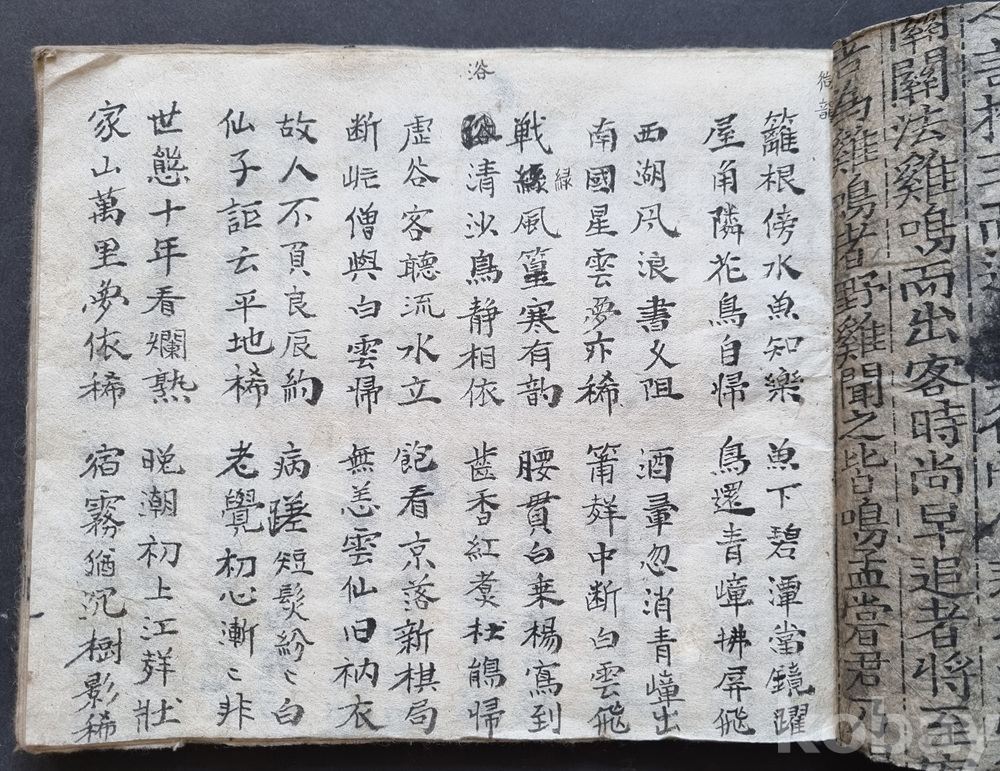 關法雞鳴而出客時尚早追者將至
雞鳴者野雞聞之皆鳴孟嘗君乃
籬根傍水魚知樂 魚下碧潭當鏡躍
屋角隣花鳥自帰 鳥還青嶂拂屏飛
西湖风浪書久阻 酒暈忽消青嶂出
南國星雲夢亦稀 中断白雲飛
緑
戦緑風篁寒有韵 腰貫白乗楊寫到
浴
清沙鳥静相依 齒香紅煑杜鵑帰
虚谷客聴流水立 飽看京落新棋局
断岾僧與白雲帰 無恙雲仙旧衲衣
故人不負良辰約 病蹉短髪紛〻白
仙子詎云平地稀 老覺初心漸〻非
世態十年看爛熟 晩潮初上江壯
家山萬里夢依稀 宿霧猶沉樹影稀